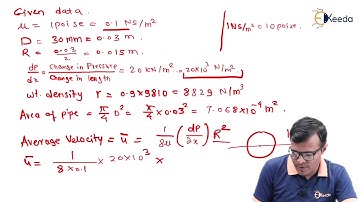 Given data.
μ = 1 poise = 0.1 NS/m²
1 NS/m² = 10 poise.
D = 30 mm = 0.03 m.
R = 0.03/2 = 0.015 m.
dp/dx = Change in Pressure/Change in length = 20 KN/m² = 20×10³ N/m²
wt. density r = 0.9×9810 = 8829 N/m³
Area of pipe = π/4 D² = π/4 × 0.03² = 7.068×10⁻⁴ m².
Average Velocity = ū = 1/8μ (dP/dx) R²
ū = 1/8×0.1 × 20×10³ ×
Ekeeda